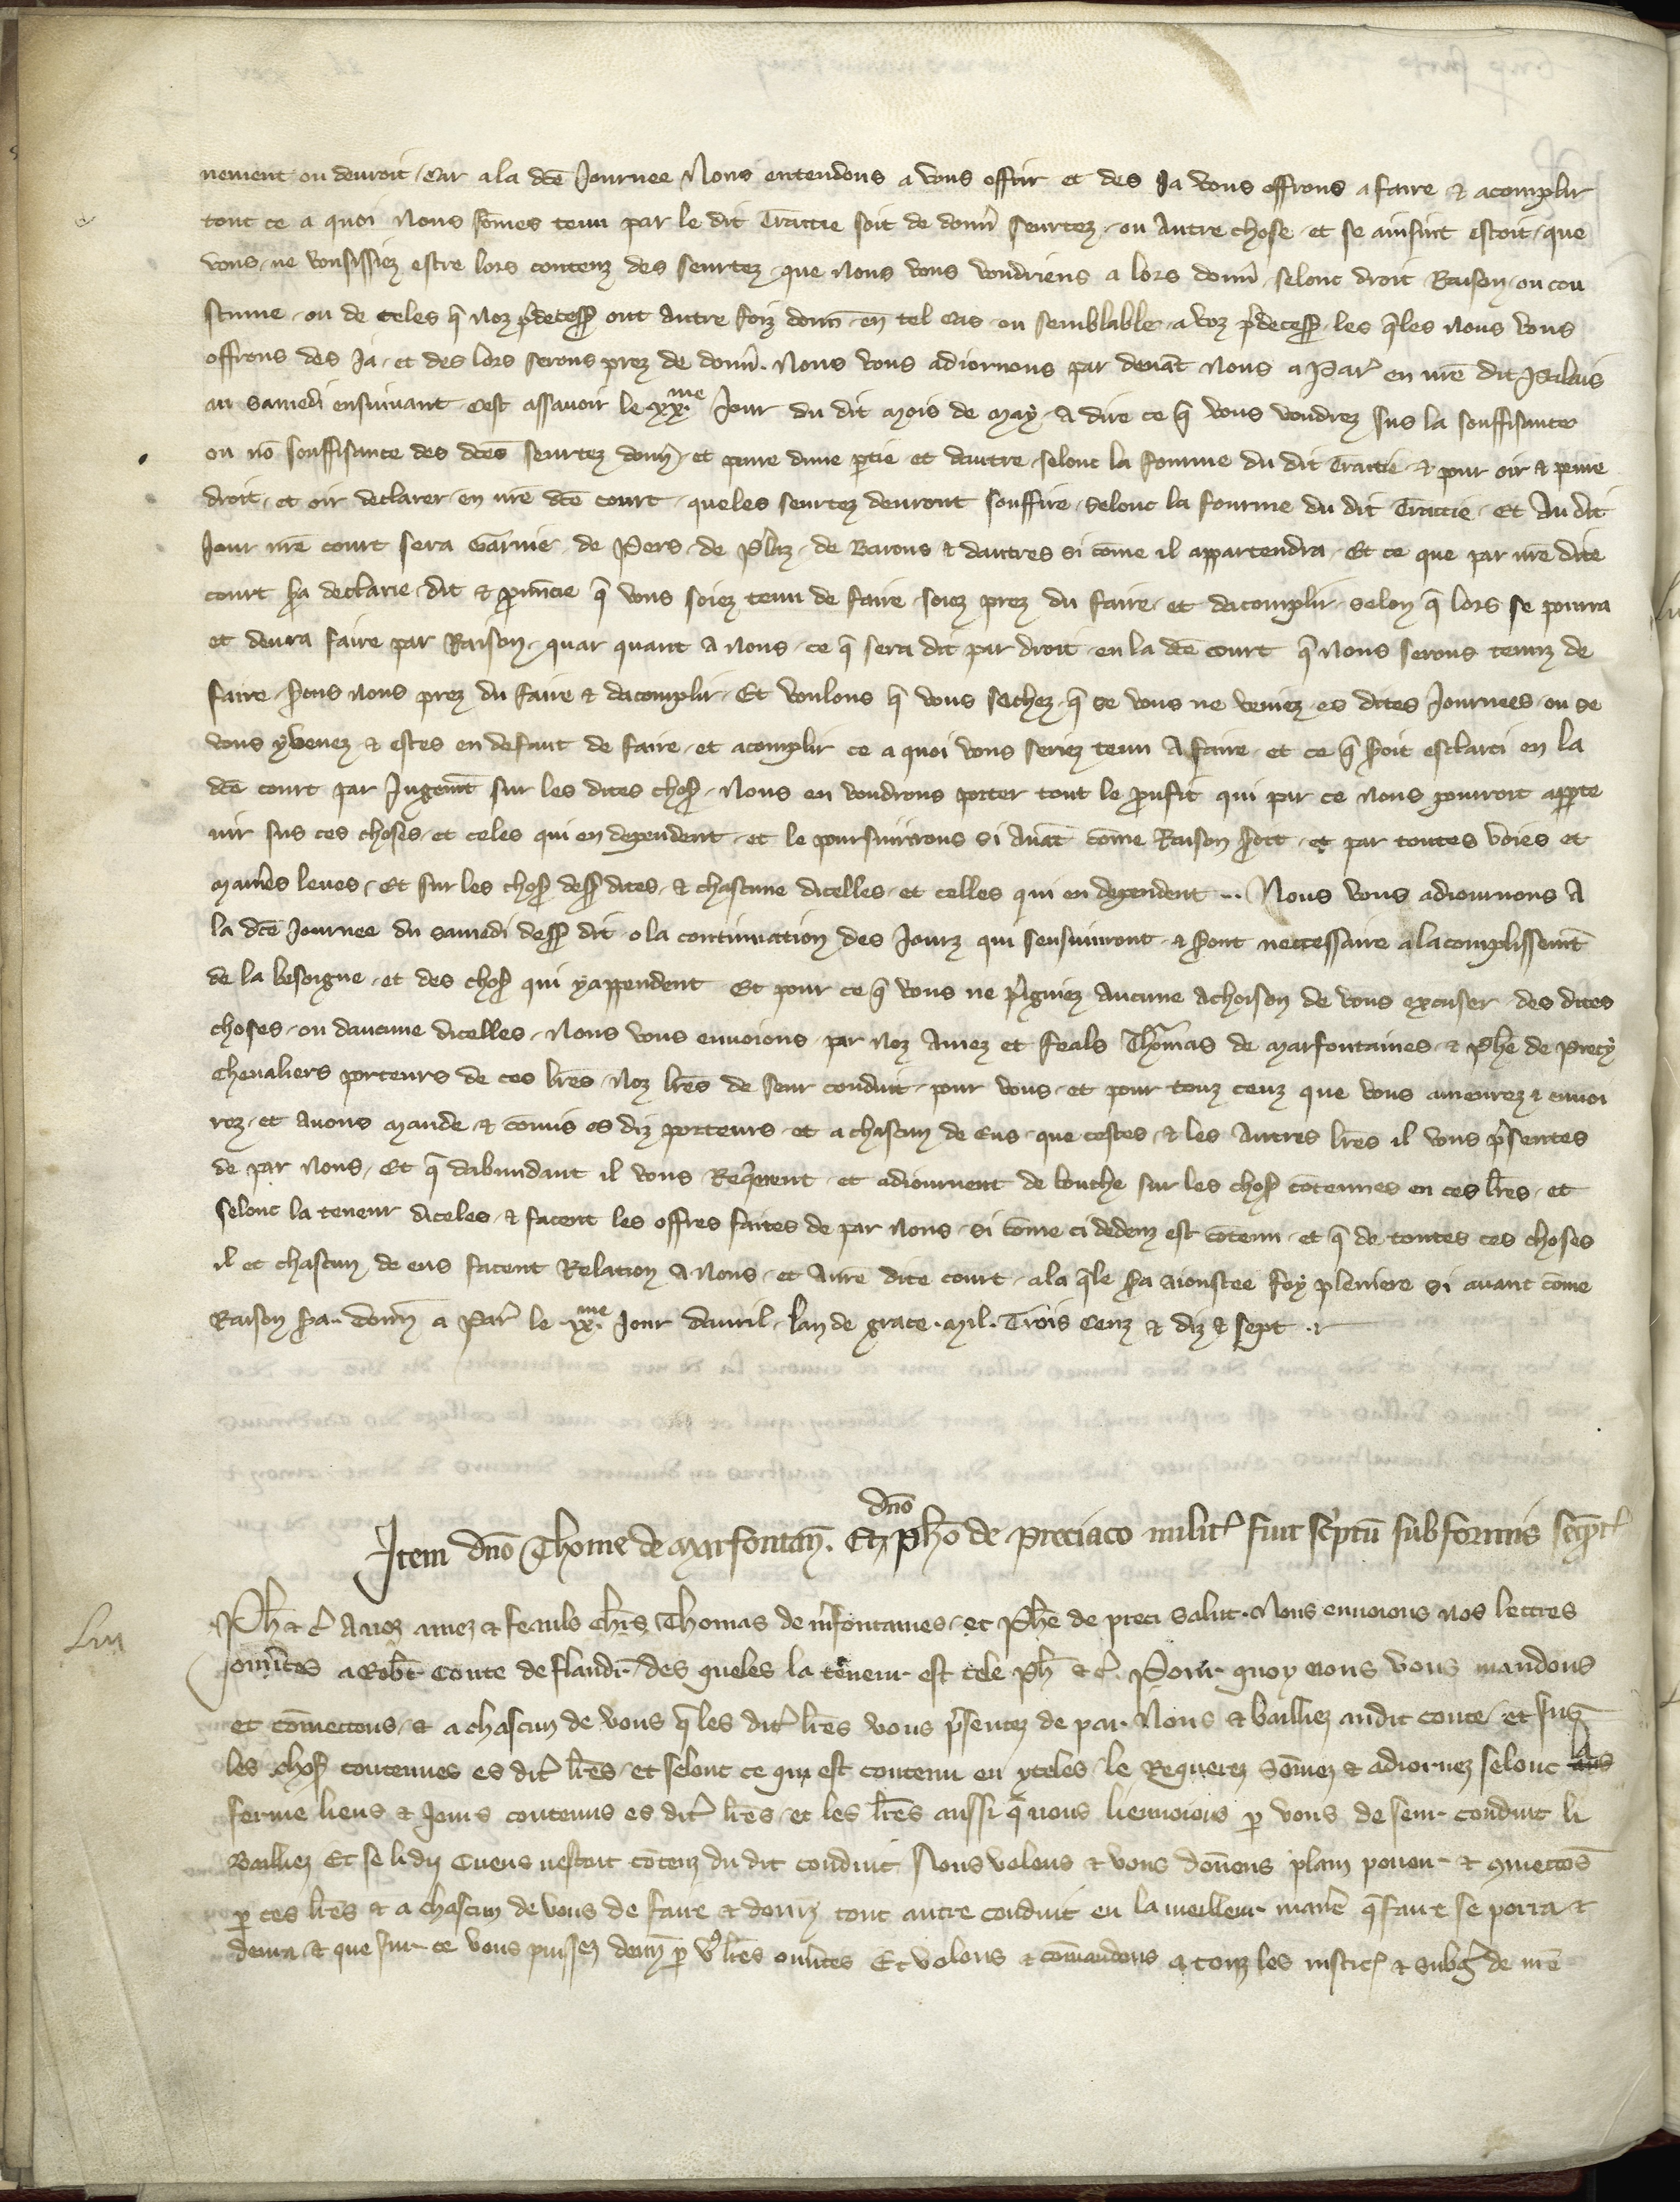 nement ou deuroit / Car a la dc̄e Journee Nous entendons a vous offrir et des Ja vous offrons a faire & acomplir
tout ce a quoi Nous som̄es tenu par le dit Traictie soit de donn̄ seurtez / ou Autre chose / et se ainsinc estoit / que
vous / ne vousissiez estre lors contenz des seurtez / que Nous vous voudriens a lors donn̄ / selonc droit Raison / ou cou
stume / ou de celes q̄ noz p̄decess̄ ont Autre foiz donn̄ / en tel Cas / ou semblable / a voz p̄decess̄ / les q̄les nous vous
offrons des Ja / et des lors serons prez de donn̄. Nous vous adiornons par deuāt nous a Par̄ en nr̄e dit Palais
au samedi ensuiuant / Cest assauoir le .xx.me Jour du dit Mois de May / A dire ce q̄ vous voudrez sus la souffisance
ou nō souffisance des dc̄es seurtez donn̄ / et prenre dune p̄tie et dautre / selonc la fourme du dit Traictie / & pour oir & penre
droit / et oir declarer / en nr̄e dc̄e court / queles seurtez deuront souffire / selonc la fourme du dit Traictie / Et Au dit
Jour nr̄e court sera Garnie / de Pers / de Prl̄az / de Barons & dautres si come il appartendra / Et ce que par nr̄e dite
court s̄ra declarie / dit & p̄nūcie q̄ vous soiez tenu de faire / soiez prez du faire / et dacomplir / selon q̄ lors se pourra
et deura faire par Raison / quar quant a nous / ce q̄ sera dit par droit / en la dc̄e court q̄ Nous serons tenuz de
faire / s̄rons nous prez du faire & dacomplir / Et voulons q̄ vous sachez / q̄ se vous ne veniez / es dites Journees / ou se
vous y venez & estes en defaut de faire / et acomplir ce a quoi vous seriez tenu A faire / et ce q̄ s̄roit esclarci en la
dc̄e court par Jugemt̄ sur les dites chos̄ / Nous en voudrons porter tout le p̄oufit qui par ce nous pourroit app̄te
nir sus ces choses / et celes qui en dependent / et le poursuiurons si Auāt com̄e Raison s̄ra / et par toutes voies et
Man̄res leues / Et sur les chos̄ dess̄ dites / & chascune dicelles / et celles qui en dependent ... Nous vous adiournons A
la dc̄e Journee du samedi dess̄ dit o la continuation des Jourz qui sensuiuront / & s̄ront neccessaire a lacomplissemt̄
de la besoigne / et des chos̄ qui y appendent Et pour ce q̄ vous ne p̄igniez Aucune Achoison de vous excuser / des dites
choses / ou daucune dicelles / Nous vous enuoions / par noz Amez et feals Thomas de Marfontaines / & Phē de Precy
Cheualiers porteurs de ces lr̄es / Noz lr̄es de seur conduit / pour vous / et pour touz ceuz que vous amenrez & enuoi
rez / et Auons Mande & com̄is es diz porteurs / et a chascun de Eus / que cestes / & les Autres lr̄es il vous p̄sentes
de par Nous / Et q̄ dabundant il vous Req̄erent / et adiournent de bouche sur les chos̄ cōtenues en ces lr̄es / et
selonc la teneur diceles / & facent les offres faites de par Nous / si com̄e ci dedenz est cōtenu / et q̄ de toutes ces choses
il et chascun de eus facent Relation A Nous / et A nr̄e dite court / a la q̄le s̄ra aioustee foy pleniere si auant com̄e
Raison s̄ra. donn̄ a Par̄ le .ix.me Jour dauril / lan de grace .Mil. Trois Cenz & diz & sept .
Item dn̄o Thome de Marfontan̄. Et dn̄o Phō de Preciaco milit̄ fuit sc̄ptū sub formis seq̄nt̄
Ph̄ & c̄ A noz amez & feauls chl̄rs Thomas de m̄fontaines / et Phē de preci Salut. Nous enuoions nos lettres
ouu̅tes a Rob̄t conte de flandr̄ des queles la teneur est tele Ph̄ & c̄. Pour quoy Nous vous mandons
et com̄ettons / & a chascun de vous q̄ les dit̄ lr̄es vous p̄sentez de par Nous & bailliez audit conte / et sus
les chos̄ contenues es dit̄ lr̄es / et selonc ce qui est contenu en yceles / le Requerez Som̄ez & adiornez selonc la
forme lieus & Jours contenus es dit̄ lr̄es / et les lr̄es aussi q̄ nous li enuoions p̄ vous de seur conduit li
Bailliez Et se li diz Cuens nestoit cōtenz du dit conduit Nous volons & vous dōnons plain pouoir & cōmettōs
p̄ ces lr̄es & a chascun de vous de faire & donn̄ tout autre conduit en la meilleur man̄e q̄ faire se porra &
deura & que sur ce vous puissez donn̄ p̄ vr̄̄ lr̄es ouu̅tes Et volons & com̄andons a touz les iustic̄ & subḡ de nr̄e
Liii